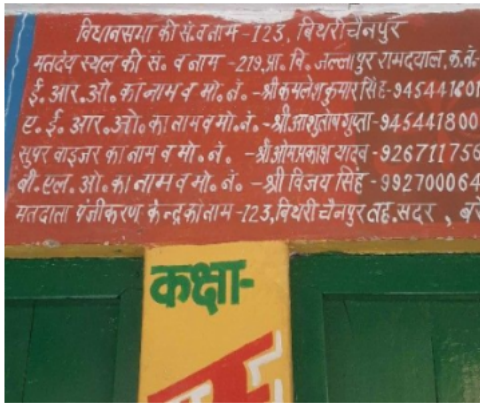 विधानसभा की सं. व नाम - 123, बिथरी चैनपुर
मतदेय स्थल की सं. व नाम - 219, प्रा. वि. जल्लापुर रामदयाल, क. नं.-
ई. आर. ओ. का नाम व मो. नं. - श्री कमलेश कुमार सिंह - 945441601
ए. ई. आर. ओ. का नाम व मो. नं. - श्री आशुतोष गुप्ता - 945441800
सुपरवाइजर का नाम व मो. नं. - श्री ओमप्रकाश यादव - 926711756
बी. एल. ओ. का नाम व मो. नं. - श्री विजय सिंह - 992700064
मतदाता पंजीकरण केन्द्र का नाम - 123, बिथरी चैनपुर तह. सदर, बरे
कक्षा-